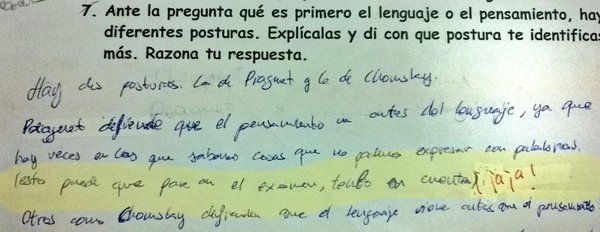 7. Ante la pregunta qué es primero el lenguaje o el pensamiento, hay
diferentes posturas. Explícalas y di con que postura te identificas
más. Razona tu respuesta.
Hay dos posturas. La de Piaget y la de Chomsky.
defiende que el pensamiento va antes del lenguaje, ya que
hay veces en las que sabemos cosas que no podemos expresar con palabras.
(esto puede que pase en el examen, tenlo en cuenta) ¡jaja!
Otros como Chomsky defienden que el lenguaje viene antes que el pensamiento